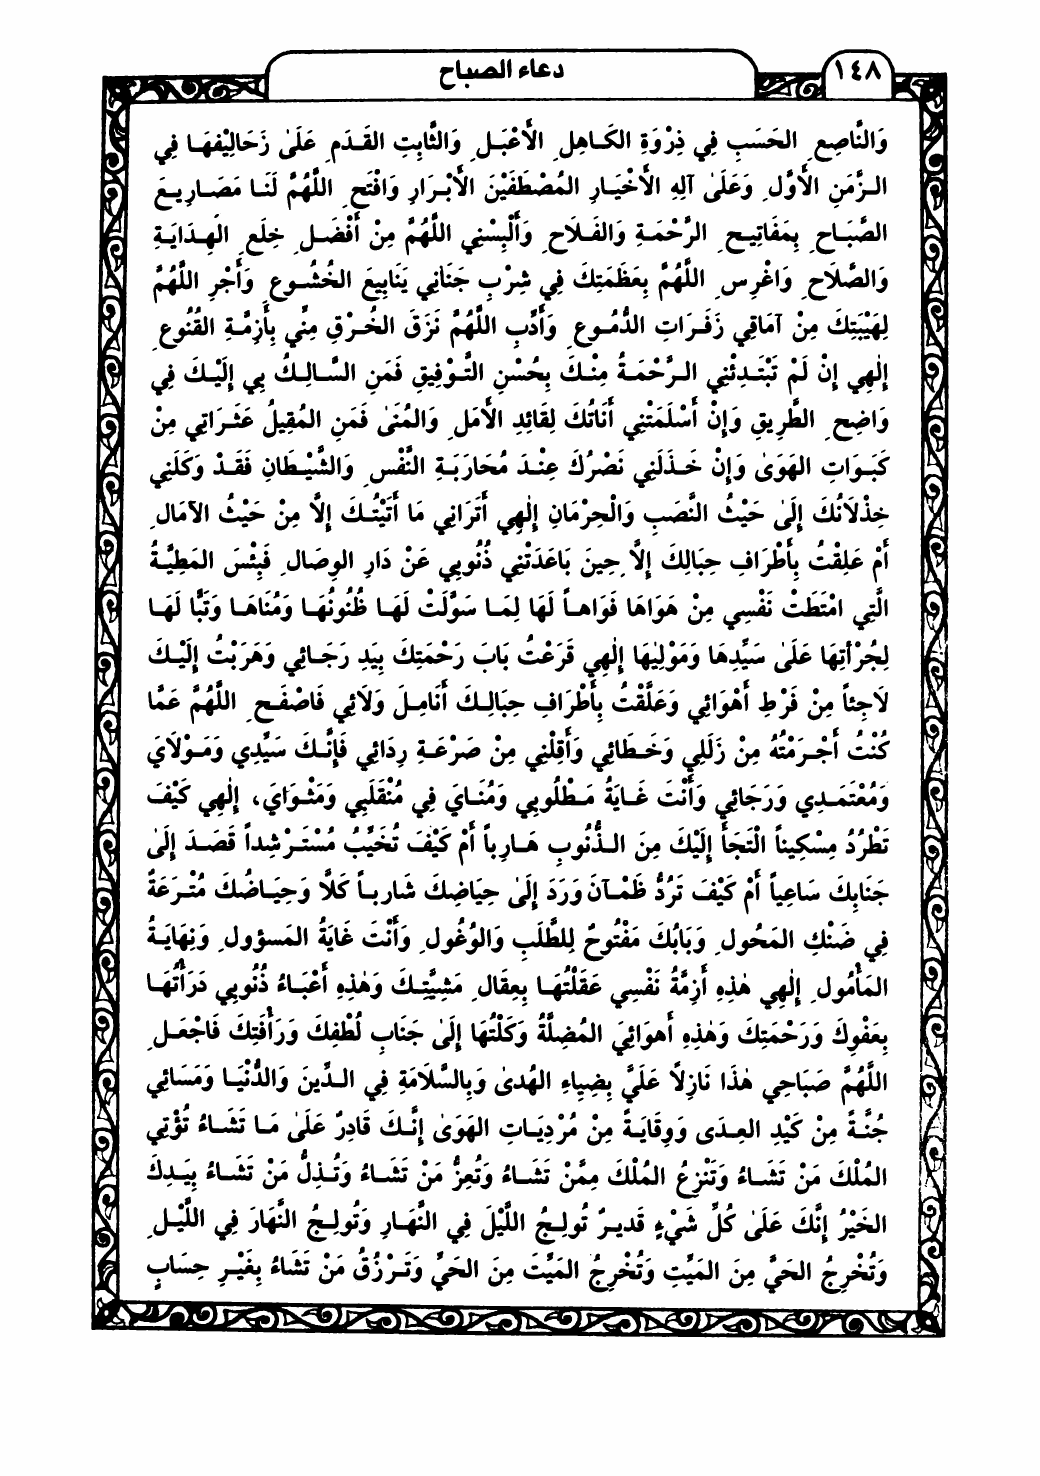 ١٤٨
دعاء الصباح
وَالنَّاصِعِ الحَسَبِ فِي ذِرْوَةِ الكَاهِلِ الأَعْبَلِ وَالثَّابِتِ القَدَمِ عَلَىٰ زَحَالِيْفِهَا فِي
الزَّمَنِ الأَوَّلِ وَعَلَىٰ آلِهِ الأَخْيَارِ المُصْطَفَيْنَ الأَبْرَارِ وَافْتَحِ اللَّهُمَّ لَنَا مَصَارِيعَ
الصَّبَاحِ بِمَفَاتِيحِ الرَّحْمَةِ وَالفَلَاحِ وَأَلْبِسْنِي اللَّهُمَّ مِنْ أَفْضَلِ خِلَعِ الهِدَايَةِ
وَالصَّلَاحِ وَاغْرِسِ اللَّهُمَّ بِعَظَمَتِكَ فِي شِرْبِ جَنَانِي يَنَابِيعَ الخُشُوعِ وَأَجْرِ اللَّهُمَّ
لِهَيْبَتِكَ مِنْ آمَاقِي زَفَرَاتِ الدُّمُوعِ وَأَدِّبِ اللَّهُمَّ نَزَقَ الخُرْقِ مِنِّي بِأَزِمَّةِ القُنُوعِ
إِلٰهِي إِنْ لَمْ تَبْتَدِئْنِي الرَّحْمَةُ مِنْكَ بِحُسْنِ التَّوْفِيقِ فَمَنِ السَّالِكُ بِي إِلَيْكَ فِي
وَاضِحِ الطَّرِيقِ وَإِنْ أَسْلَمَتْنِي أَنَاتُكَ لِقَائِدِ الأَمَلِ وَالمُنَىٰ فَمَنِ المُقِيلُ عَثَرَاتِي مِنْ
كَبَوَاتِ الهَوَىٰ وَإِنْ خَذَلَنِي نَصْرُكَ عِنْدَ مُحَارَبَةِ النَّفْسِ وَالشَّيْطَانِ فَقَدْ وَكَلَنِي
خِذْلَانُكَ إِلَىٰ حَيْثُ النَّصَبِ وَالْحِرْمَانِ إِلٰهِي أَتَرَانِي مَا أَتَيْتُكَ إِلَّا مِنْ حَيْثُ الآمَالِ
أَمْ عَلِقْتُ بِأَطْرَافِ حِبَالِكَ إِلَّا حِينَ بَاعَدَتْنِي ذُنُوبِي عَنْ دَارِ الوِصَالِ فَبِئْسَ المَطِيَّةُ
الَّتِي امْتَطَتْ نَفْسِي مِنْ هَوَاهَا فَوَاهاً لَهَا لِمَا سَوَّلَتْ لَهَا ظُنُونُهَا وَمُنَاهَا وَتَبًّا لَهَا
لِجُرْأَتِهَا عَلَىٰ سَيِّدِهَا وَمَوْلِيٰهَا إِلٰهِي قَرَعْتُ بَابَ رَحْمَتِكَ بِيَدِ رَجَائِي وَهَرَبْتُ إِلَيْكَ
لَاجِئاً مِنْ فَرْطِ أَهْوَائِي وَعَلَّقْتُ بِأَطْرَافِ حِبَالِكَ أَنَامِلَ وَلَائِي فَاصْفَحِ اللَّهُمَّ عَمَّا
كُنْتُ أَجْرَمْتُهُ مِنْ زَلَلِي وَخَطَائِي وَأَقِلْنِي مِنْ صَرْعَةِ رِدَائِي فَإِنَّكَ سَيِّدِي وَمَوْلَايَ
وَمُعْتَمَدِي وَرَجَائِي وَأَنْتَ غَايَةُ مَطْلُوبِي وَمُنَايَ فِي مُنْقَلَبِي وَمَثْوَايَ، إِلٰهِي كَيْفَ
تَطْرُدُ مِسْكِيناً الْتَجَأَ إِلَيْكَ مِنَ الذُّنُوبِ هَارِباً أَمْ كَيْفَ تُخَيِّبُ مُسْتَرْشِداً قَصَدَ إِلَىٰ
جَنَابِكَ سَاعِياً أَمْ كَيْفَ تَرُدُّ ظَمْآنَ وَرَدَ إِلَىٰ حِيَاضِكَ شَارِباً كَلَّا وَحِيَاضُكَ مُتْرَعَةٌ
فِي ضَنْكِ المَحُولِ وَبَابُكَ مَفْتُوحٌ لِلطَّلَبِ وَالوُغُولِ وَأَنْتَ غَايَةُ المَسؤولِ وَنِهَايَةُ
المَأْمُولِ إِلٰهِي هٰذِهِ أَزِمَّةُ نَفْسِي عَقَلْتُهَا بِعِقَالِ مَشِيَّتِكَ وَهٰذِهِ أَعْبَاءُ ذُنُوبِي دَرَأْتُهَا
بِعَفْوِكَ وَرَحْمَتِكَ وَهٰذِهِ أَهوَائِيَ المُضِلَّةُ وَكَلْتُهَا إِلَىٰ جَنَابِ لُطْفِكَ وَرَأْفَتِكَ فَاجْعَلِ
اللَّهُمَّ صَبَاحِي هٰذَا نَازِلاً عَلَيَّ بِضِيَاءِ الهُدىٰ وَبِالسَّلَامَةِ فِي الدِّينَ وَالدُّنْيَا وَمَسَائِي
جُنَّةً مِنْ كَيْدِ العِدَى وَوِقَايَةً مِنْ مُرْدِيَاتِ الهَوَىٰ إِنَّكَ قَادِرٌ عَلَىٰ مَا تَشَاءُ تُؤْتِي
المُلْكَ مَنْ تَشَاءُ وَتَنْزِعُ المُلْكَ مِمَّنْ تَشَاءُ وَتُعِزُّ مَنْ تَشَاءُ وَتُذِلُّ مَنْ تَشَاءُ بِيَدِكَ
الخَيْرُ إِنَّكَ عَلَىٰ كُلِّ شَيْءٍ قَدیرٌ تُولِجُ اللَّيْلَ فِي النَّهَارِ وَتُولِجُ النَّهَارَ فِي اللَّيْلِ
وَتُخْرِجُ الحَيَّ مِنَ المَيِّتِ وَتُخْرِجُ المَيِّتَ مِنَ الحَيِّ وَتَرْزُقُ مَنْ تَشَاءُ بِغَيْرِ حِسَابٍ